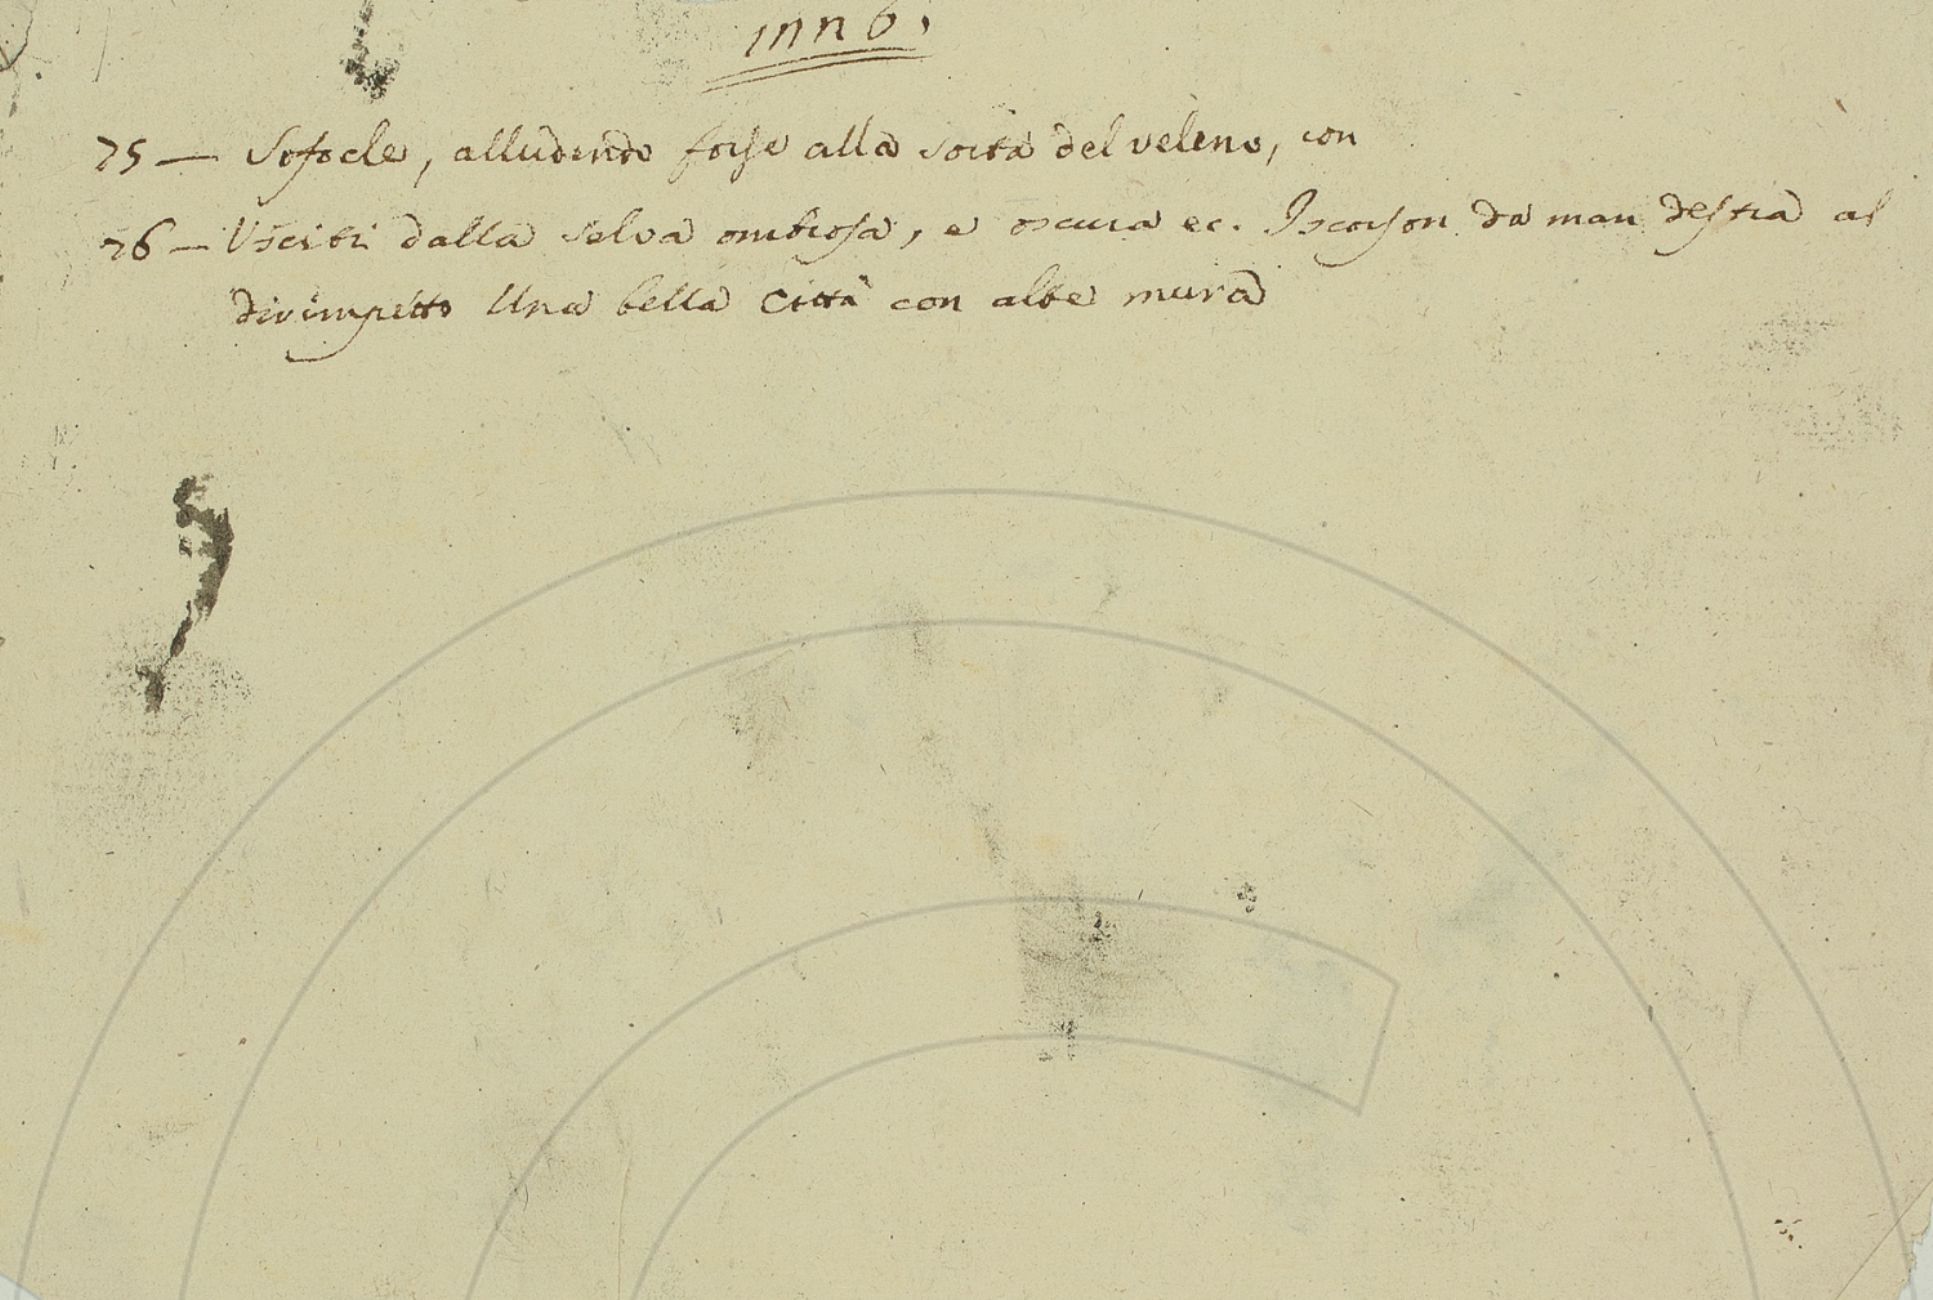 inn 6.
25 — Sofocle, alludendo forse alla sorta del veleno, con
26 — Usciti dalla selva ombrosa, e oscura ec. Iscorson da man destra al
dirimpetto Una bella Città con alte mura